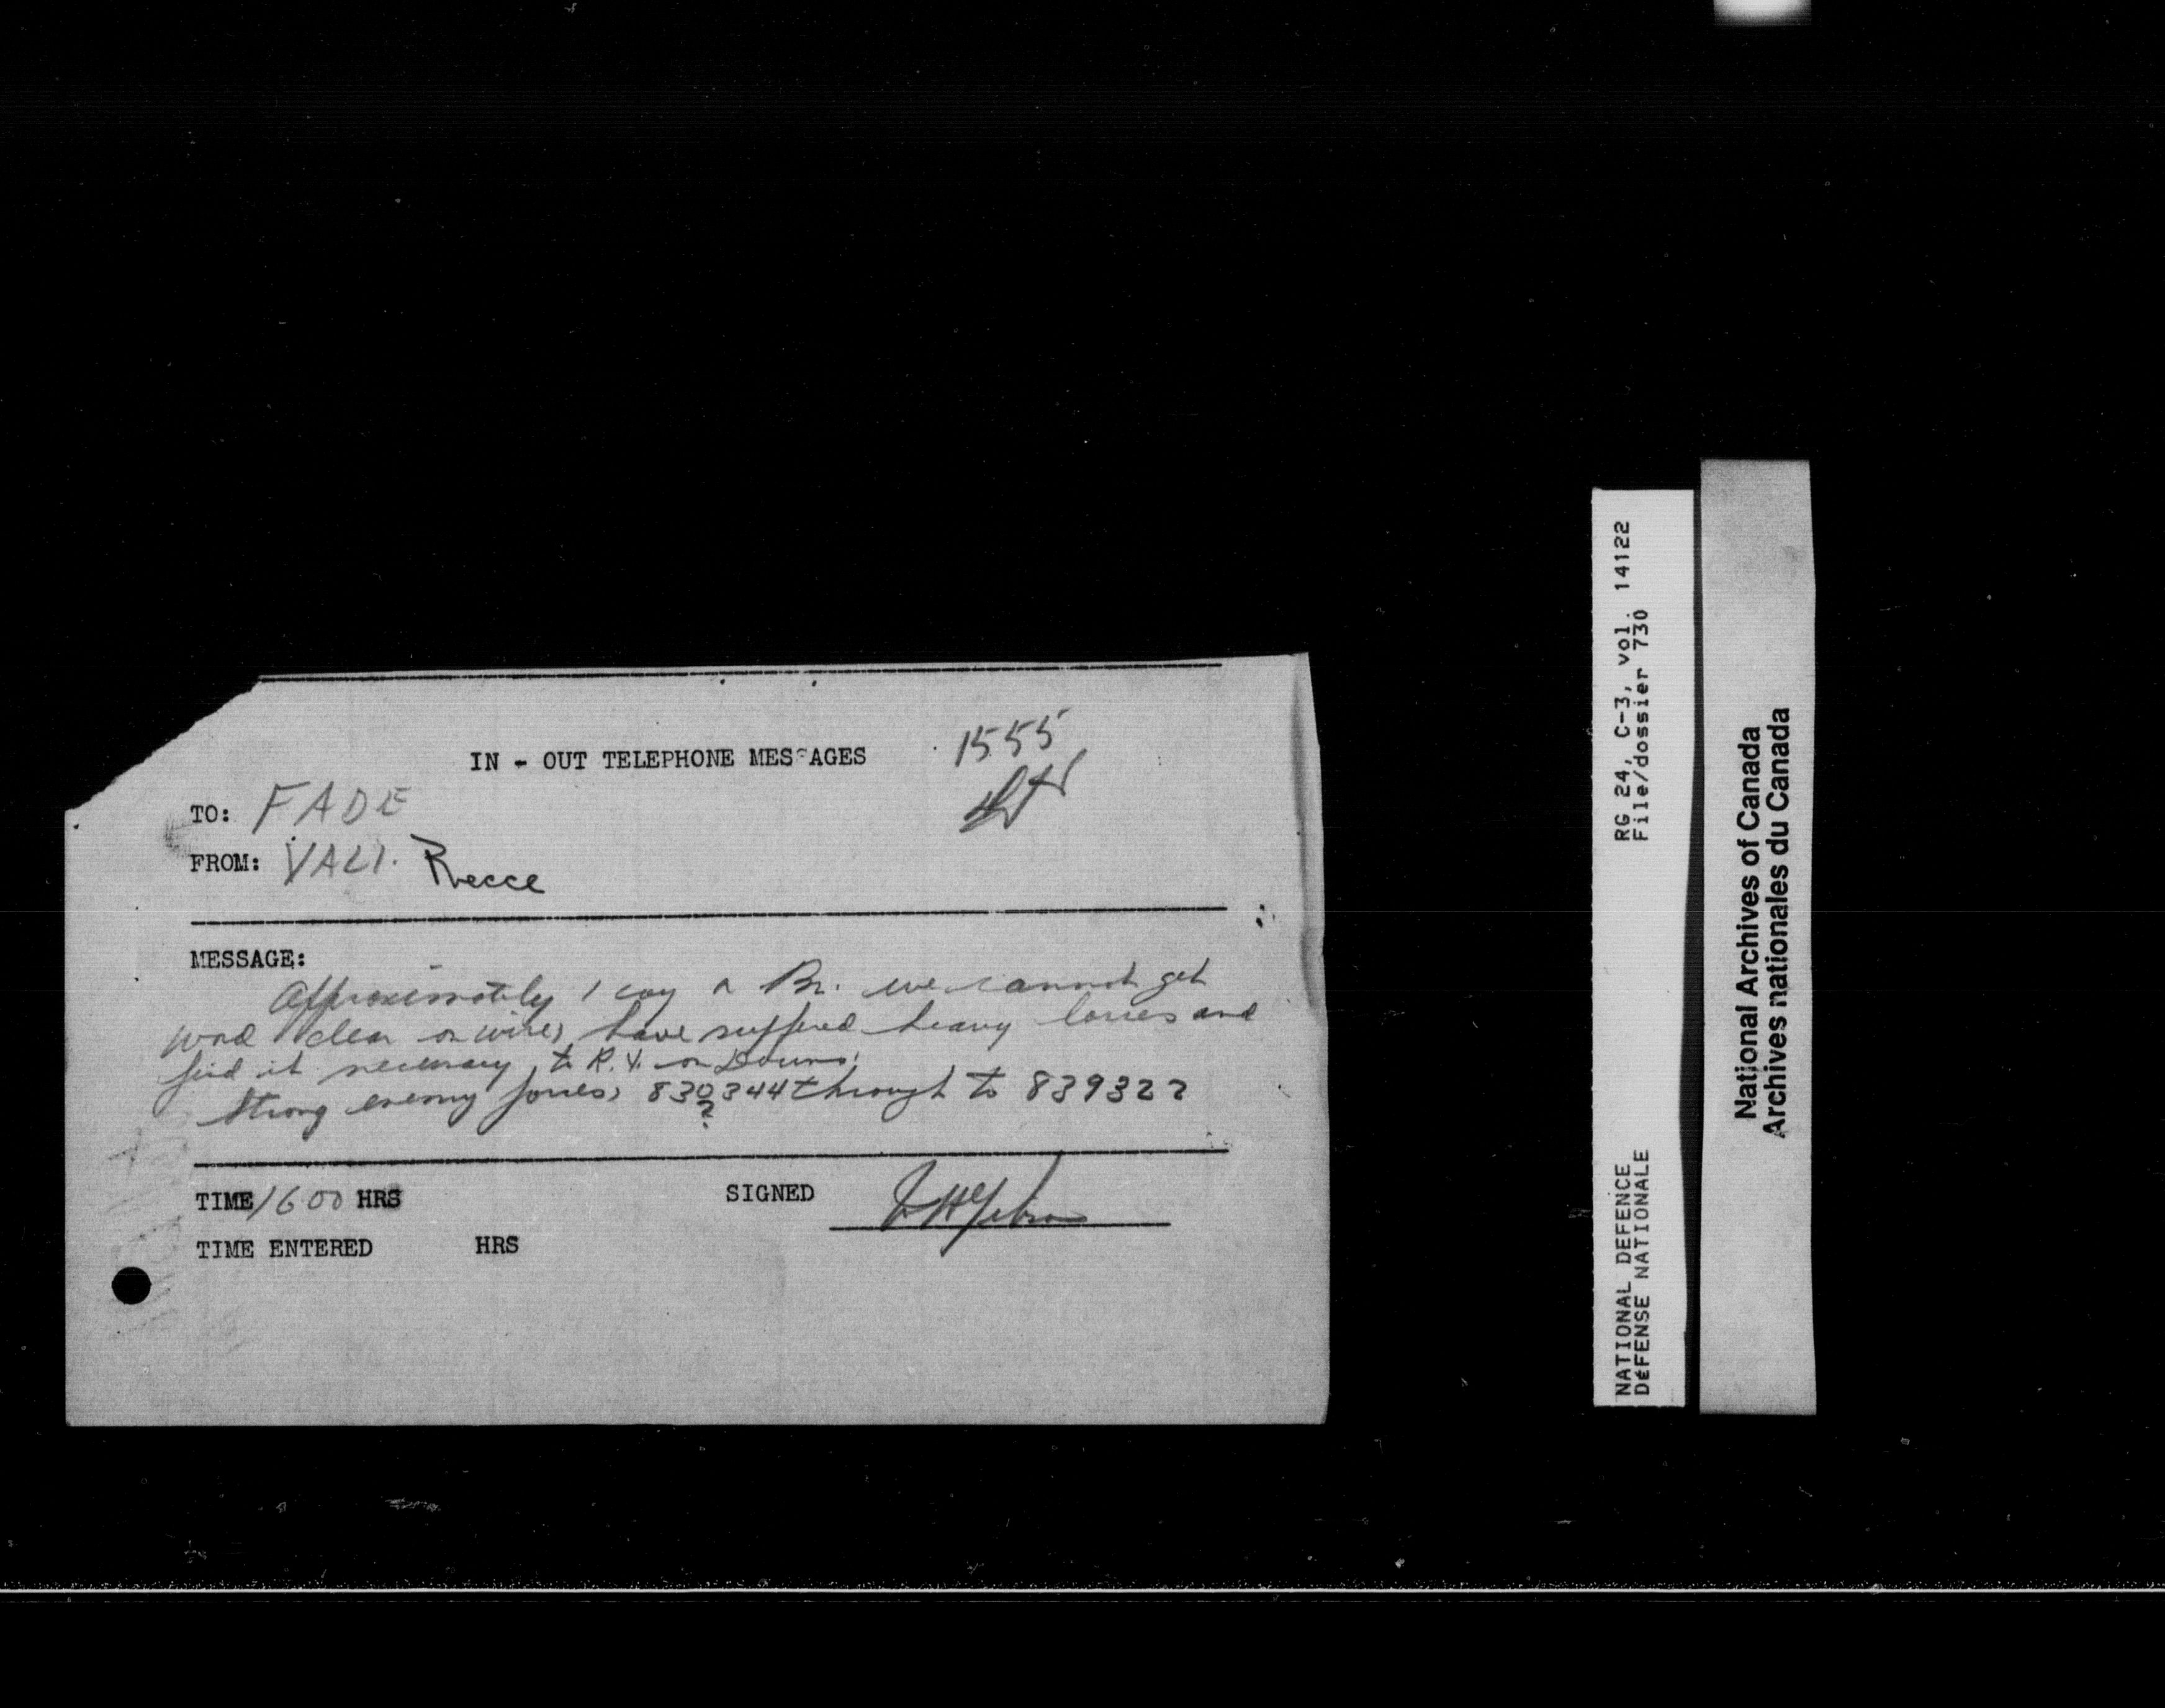 IN - OUT TELEPHONE MESSAGES
1555
TO: FADE
FROM: VALI. Recce
MESSAGE:
Approximately 1 coy a Bn. we cannot get
word clear on wire, have suffered heavy losses and
find it necessary to R.V. on Downs.
Strong enemy forces, 830344 through to 839322
?
TIME 1600 HRS
SIGNED
TIME ENTERED HRS
RG 24, C-3, vol. 14122
File/dossier 730
NATIONAL DEFENCE
DÉFENSE NATIONALE
National Archives of Canada
Archives nationales du Canada